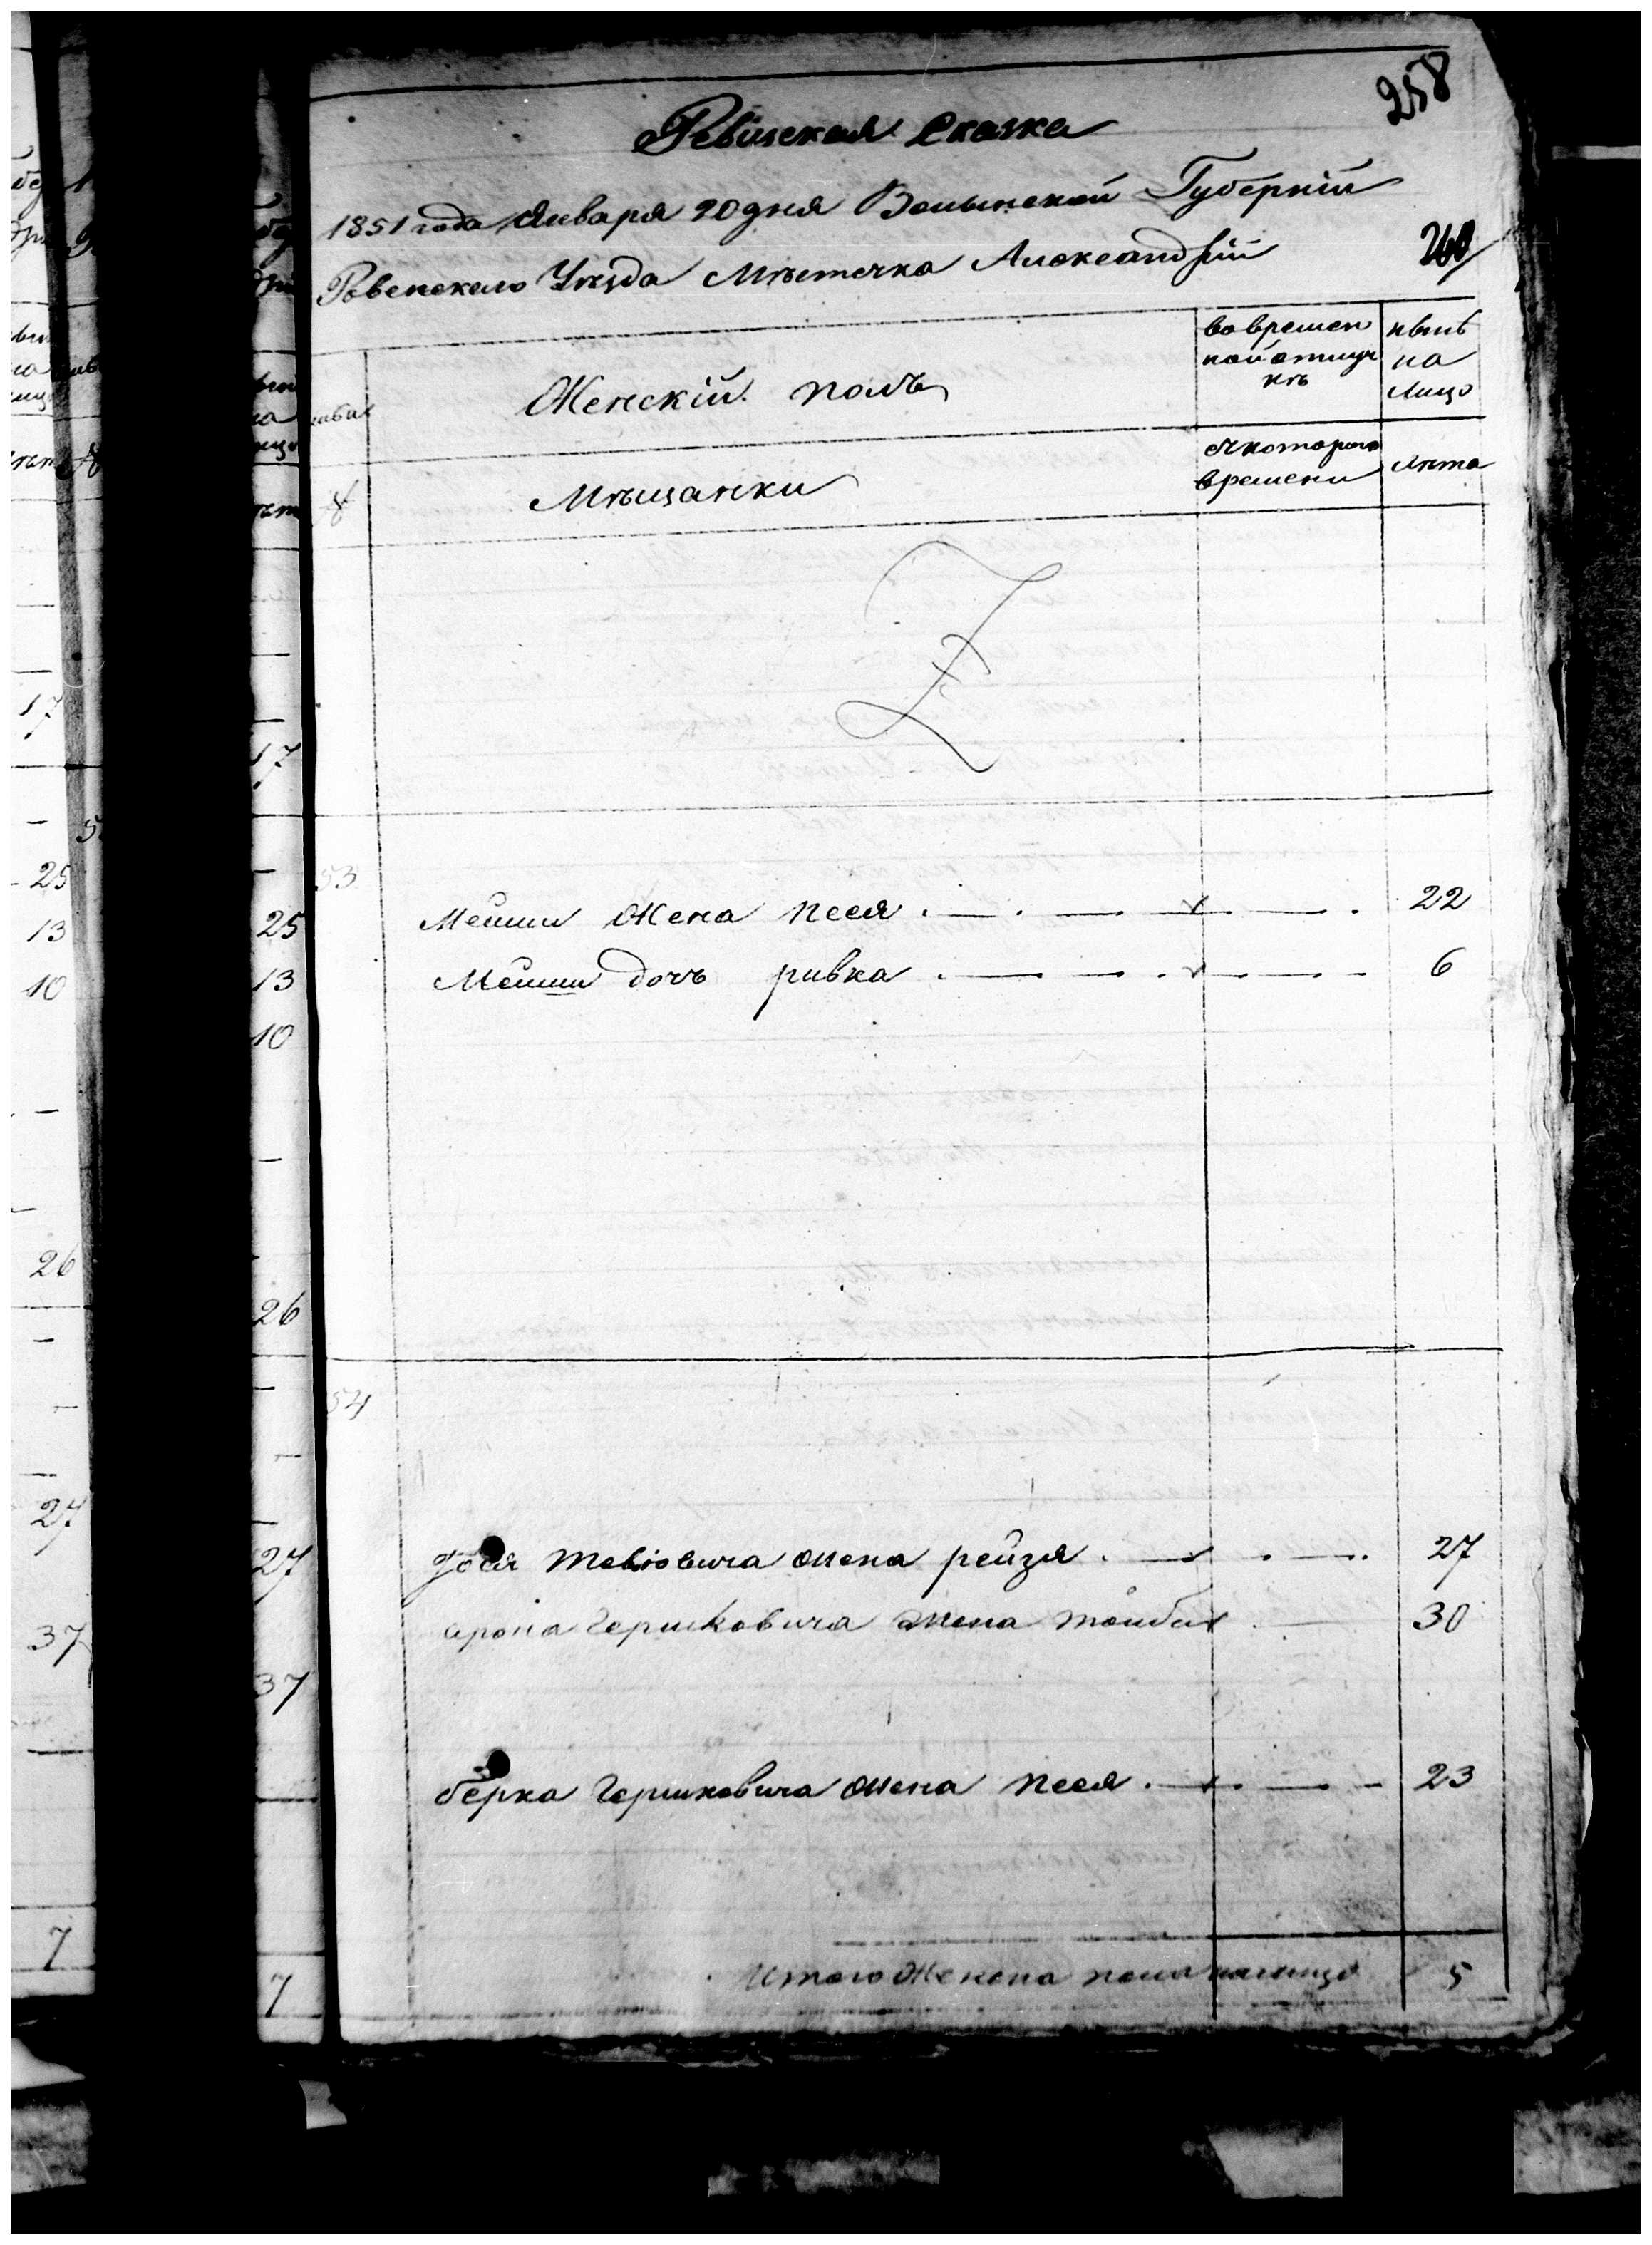 258
Ревизская Сказка
1851 года Января 20 дня Волынской Губерніи
Ровенскаго Уѣзда Мѣстечка Александріи
260
Женскій полъ
во времен
ной отлуч
кѣ
нынѣ
на
Лицо
№
Мѣщанки
съ котораго
времени
Лѣта
53
Мейши Жена Песя 22
Мейши дочь ривка 6
54
Іося Тевіовича жена рейзя 27
арона Гершковича жена тойба 30
берка Гершковича жена Песя 23
Итого Женска пола налицо 5
17
25
13
10
26
27
37
7
17
25
13
10
26
27
37
7